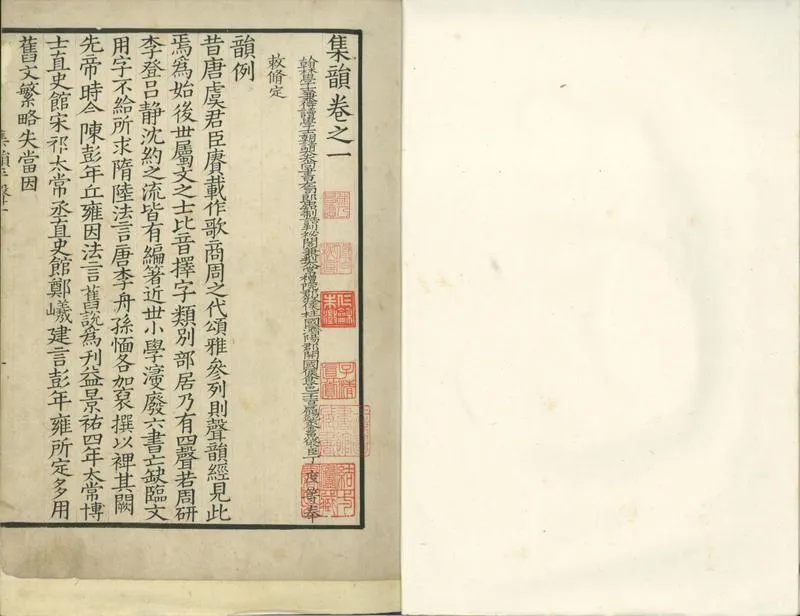 集韻卷之一
翰林學士兼侍讀學士朝請大夫尚書左司郎中知制誥判祕閣兼判太常禮院羣牧使柱國濟陽郡開國侯食邑一千二百戶賜紫金魚袋臣丁度等奉
敕脩定
韻例
昔唐虞君臣賡載作歌商周之代頌雅參列則聲韻經見此
焉爲始後世屬文之士比音擇字類別部居乃有四聲若周研
李登呂靜沈約之流皆有編著近世小學濅廢六書亡缺臨文
用字不給所求隋陸法言唐李舟孫愐各加裒撰以裨其闕
先帝時令陳彭年丘雍因法言舊說爲刋益景祐四年太常博
士直史館宋祁太常丞直史館鄭戩建言彭年雍所定多用
舊文繁略失當因